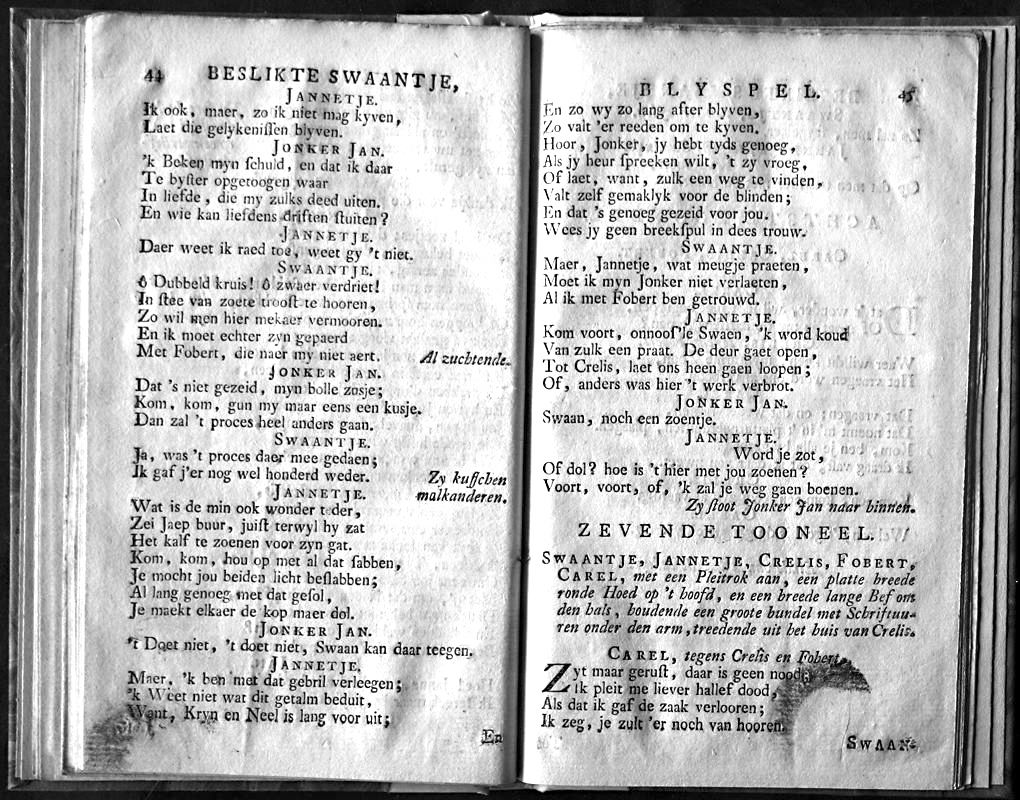 44 BESLIKTE SWAANTJE,
JANNETJE.
Ik ook, maer, zo ik niet mag kyven,
Laet die gelykeniſſen blyven.
JONKER JAN.
'k Beken myn ſchuld, en dat ik daar
Te byſter opgetoogen waar
In liefde, die my zulks deed uiten.
En wie kan liefdens driften ſtuiten?
JANNETJE.
Daer weet ik raed toe, weet gy 't niet.
SWAANTJE.
ô Dubbeld kruis! ô zwaer verdriet!
In ſtee van zoete trooſt te hooren,
Zo wil men hier mekaer vermooren.
En ik moet echter zyn gepaerd
Met Fobert, die naer my niet aert. Al zuchtende.
JONKER JAN.
Dat 's niet gezeid, myn bolle zosje;
Kom, kom, gun my maar eens een kusje.
Dan zal 't proces heel anders gaan.
SWAANTJE.
Ja, was 't proces daer mee gedaen;
Ik gaf j'er nog wel honderd weder. Zy kuſſchen
JANNETJE. malkanderen.
Wat is de min ook wonder teder,
Zei Jaep buur, juiſt terwyl hy zat
Het kalf te zoenen voor zyn gat.
Kom, kom, hou op met al dat ſabben,
Je mocht jou beiden licht beſlabben;
Al lang genoeg met dat geſol,
Je maekt elkaer de kop maer dol.
JONKER JAN.
't Doet niet, 't doet niet, Swaan kan daar teegen.
JANNETJE.
Maer, 'k ben met dat gebril verleegen;
'k Weet niet wat dit getalm beduit,
Want, Kryn en Neel is lang voor uit;
En
BLYSPEL. 45
En zo wy zo lang after blyven,
Zo valt 'er reeden om te kyven.
Hoor, Jonker, jy hebt tyds genoeg,
Als jy heur ſpreeken wilt, 't zy vroeg,
Of laet, want, zulk een weg te vinden,
Valt zelf gemaklyk voor de blinden;
En dat 's genoeg gezeid voor jou.
Wees jy geen breekſpul in dees trouw.
SWAANTJE.
Maer, Jannetje, wat meugje praeten,
Moet ik myn Jonker niet verlaeten,
Al ik met Fobert ben getrouwd.
JANNETJE.
Kom voort, onnooſ'le Swaen, 'k word koud
Van zulk een praat. De deur gaet open,
Tot Crelis, laet ons heen gaen loopen;
Of, anders was hier 't werk verbrot.
JONKER JAN.
Swaan, noch een zoentje.
JANNETJE.
Word je zot,
Of dol? hoe is 't hier met jou zoenen?
Voort, voort, of, 'k zal je weg gaen boenen.
Zy ſtoot Jonker Jan naar binnen.
ZEVENDE TOONEEL.
SWAANTJE, JANNETJE, CRELIS, FOBERT,
CAREL, met een Pleitrok aan, een platte breede
ronde Hoed op 't hoofd, en een breede lange Bef om
den hals, houdende een groote bundel met Schriftuu-
ren onder den arm, treedende uit het huis van Crelis.
CAREL, tegens Crelis en Fobert.
Zyt maar geruſt, daar is geen nood;
ik pleit me liever hallef dood,
Als dat ik gaf de zaak verlooren;
Ik zeg, je zult 'er noch van hooren.
SWAAN-